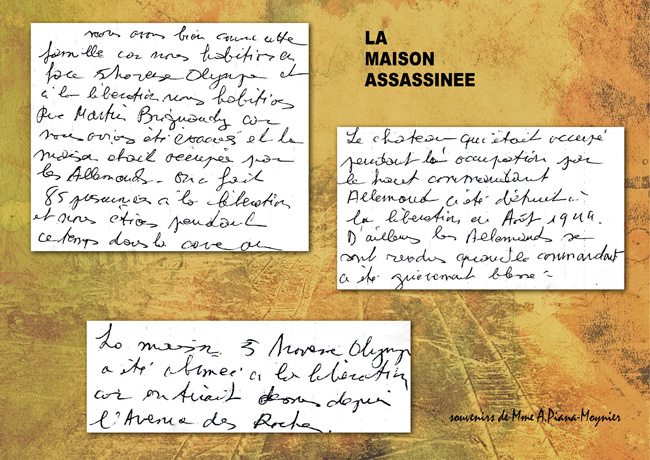 nous avons bien connu cette
famille car nous habitions en
face 5 traverse Olympe et
à la libération nous habitions
Rue Martin Brignaudy car
nous avions été évacués et la
maison était occupée par
les Allemands. On a fait
85 prisonniers à la libération
et nous étions pendant
ce temps dans la cave
LA
MAISON
ASSASSINEE
Le chateau qui était occupé
pendant l'occupation par
le haut commandant
Allemand a été détruit à
la libération en Août 1944.
D'ailleurs les Allemands se
sont rendus quand le commandant
a été grièvement blessé
La maison 5 Traverse Olympe
a été abimée à la libération
car on tirait dessus depuis
l'Avenue des Roches.
souvenirs de Mme A.Piana-Moynier